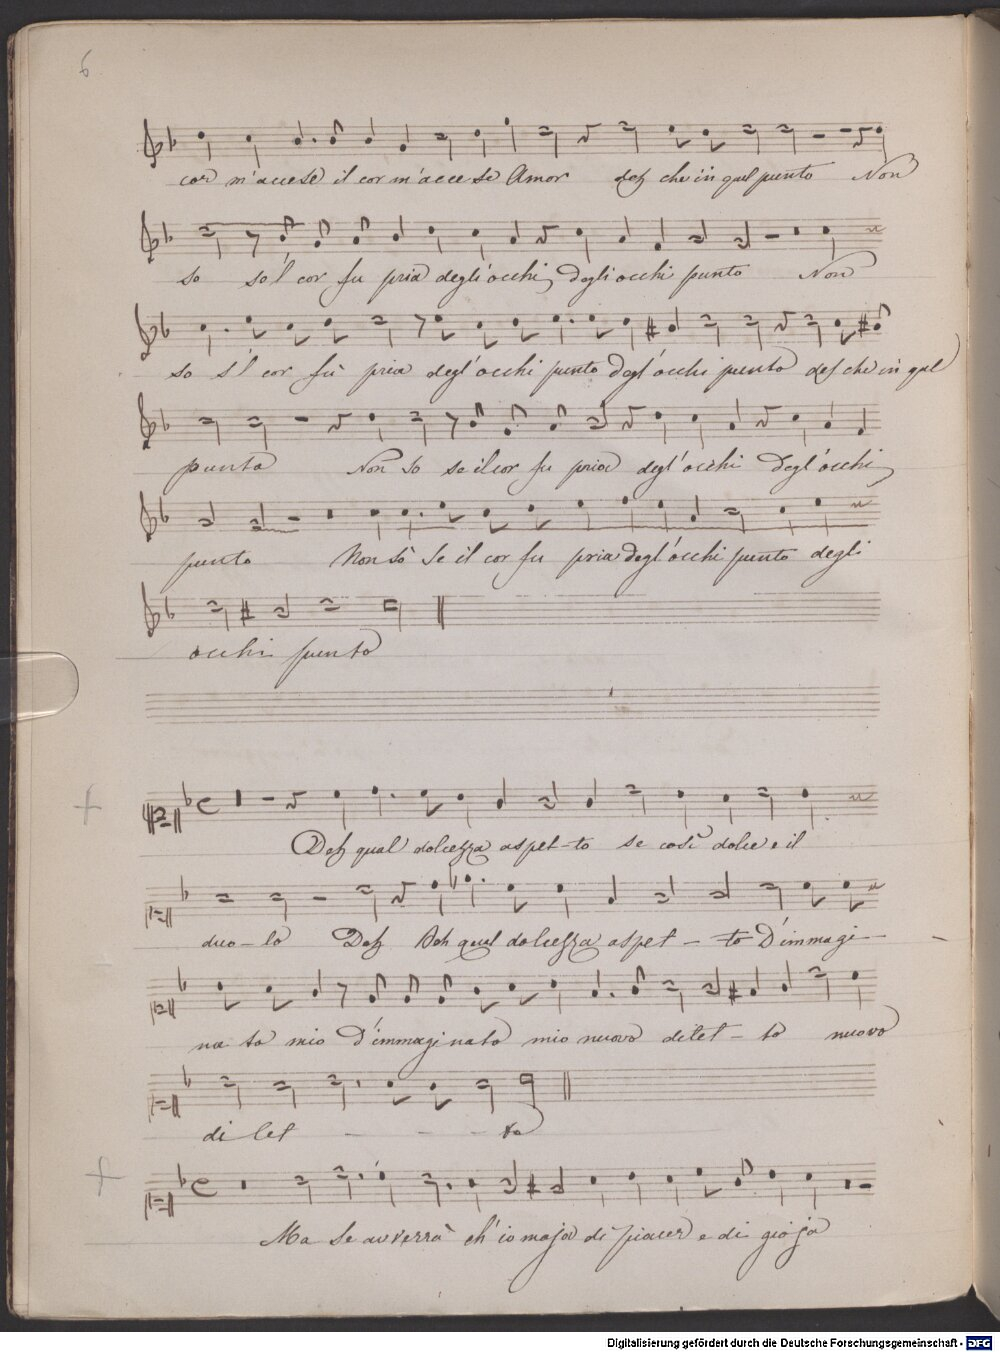 6
cor m'accese il cor m'accese Amor deh che in quel punto Non
so so'l cor fu pria degli occhi, degli occhi punto Non
so s'l cor fù pria degl'occhi punto degl'occhi punto deh che in quel
punto Non so se il cor fu pria degl'occhi degl'occhi
punto Non sò Se il cor fu pria degl'occhi punto degli
occhi punto
Deh qual dolcezza aspet-to se così dolce e il
duo-lo Deh Deh qual dolcezza aspet-to D'immagi-
nato mio D'immaginato mio nuovo dilet-to nuovo
dilet - - - to
Ma se avverrà ch'io moja di piacer e di gioja
Digitalisierung gefördert durch die Deutsche Forschungsgemeinschaft - DFG